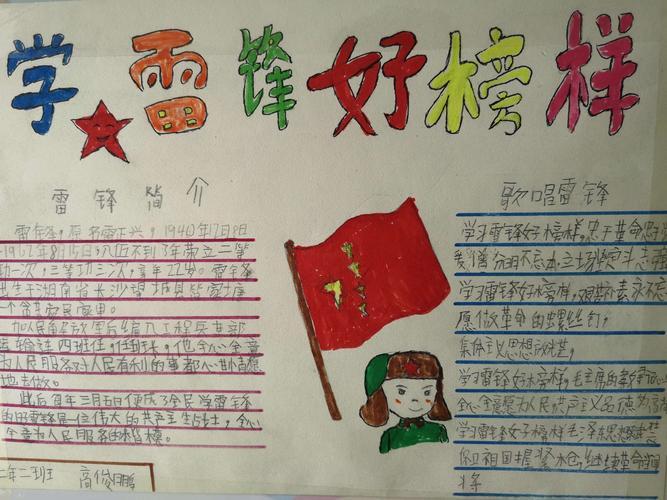 学雷锋好榜样
雷锋简介
雷锋,原名雷正兴,1940年12月18日
1962年8月15日,入伍不到了年荣立二等
功一次,三等功三次,享年22岁。雷锋
出生于湖南省长沙望城县
一个贫苦农民家里。
加人民解放军后编入工程兵某部
运输连四班任班长,他全心全意
为人民服务对人民有利的事都心甘情愿
地去做。
此后每年三月五日便成了全民学雷锋
的日雷锋是一位伟大的共产主义战士,全心
全意为人民服务的楷模。
二年二班 高俊鹏
歌唱雷锋
学习雷锋好榜样,忠于革命忠于
爱憎分明不忘本立场坚斗志
学习雷锋好榜样,艰苦朴素永不忘
愿做革命的螺丝钉,
集体主义思想放光芒,
学习雷锋好榜样,毛主席的教导记心
全心全意为人民共产主义品德为高
学习雷锋好榜样毛泽东思想武装
保卫祖国握紧枪继续革命当闯
将